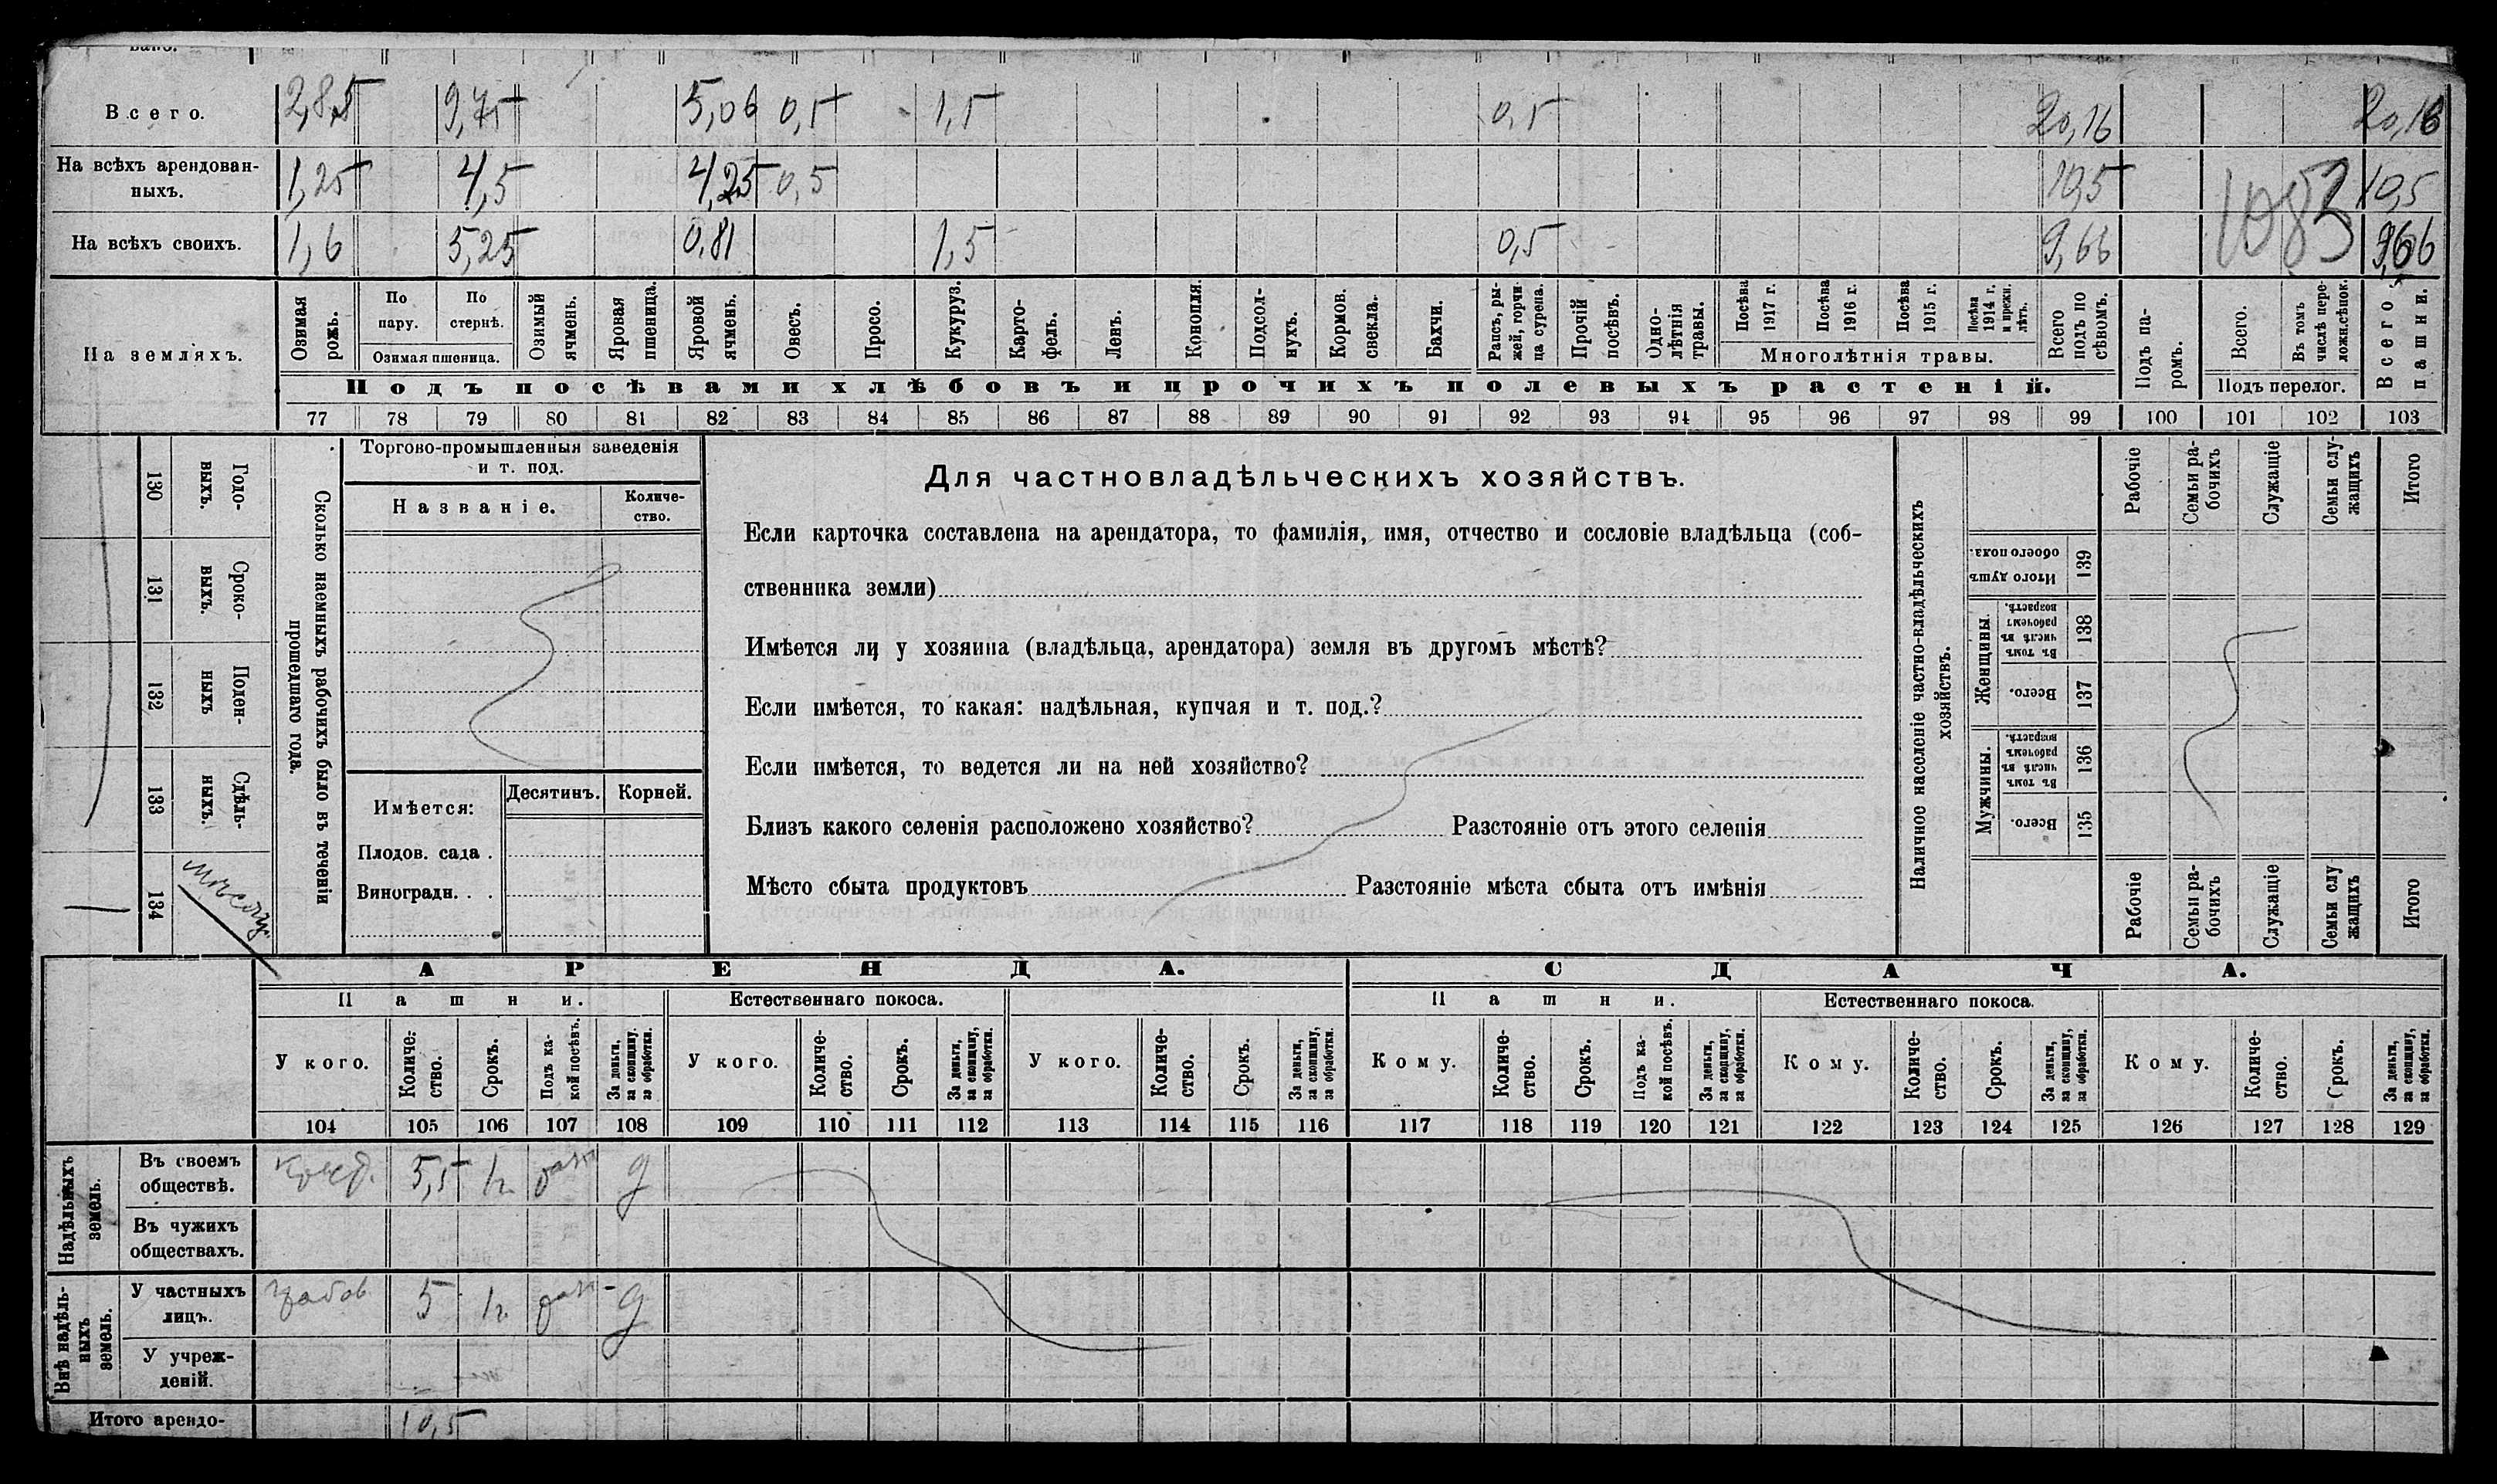 Всего. 2,85 9,75 5,06 0,5 1,5 0,5 20,16 20,16
На всѣхъ арендован-
ныхъ. 1,25 4,5 4,25 0,5 10,5 10,5
1083
На всѣхъ своихъ. 1,6 5,25 0,81 1,5 0,5 9,66 9,66
На земляхъ.
Озимая рожь.
По пару.
По стернѣ.
Озимая пшеница.
Озимый ячмень.
Яровая пшеница.
Яровой ячмень.
Овесъ.
Просо.
Кукуруз.
Карто-
фель.
Ленъ.
Конопля.
Подсол-
нухъ.
Кормов.
свекла.
Бахчи.
Рапсъ, ры-
жей, горчи
ца сурепа.
Прочій
посѣвъ.
Одно-
лѣтнія
травы.
Посѣва
1917 г.
Посѣва
1916 г.
Посѣва
1915 г.
Посѣва
1914 г.
и прежн.
лѣтъ.
Многолѣтнія травы.
Всего
подъ по
сѣвомъ.
Подъ па-
ромъ.
Всего.
Въ томъ
числѣ пере-
ложн.сѣнок.
Подъ перелог.
Всего
пашни.
Подъ посѣвами хлѣбовъ и прочихъ полевыхъ растеній.
77 78 79 80 81 82 83 84 85 86 87 88 89 90 91 92 93 94 95 96 97 98 99 100 101 102 103
130 Годо-
выхъ.
131 Сроко-
выхъ.
132 Поден-
ныхъ
133 Сдѣль-
ныхъ.
134
Сколько наемныхъ рабочихъ было въ теченіи
прошедшаго года.
Торгово-промышленныя заведенія
и т. под.
Названіе.
Количе-
ство.
Имѣется:
Десятинъ. Корней.
Плодов. сада .
Виноградн. . .
Для частновладѣльческихъ хозяйствъ.
Если карточка составлена на арендатора, то фамилія, имя, отчество и сословіе владѣльца (соб-
ственника земли)
Имѣется ли у хозяина (владѣльца, арендатора) земля въ другомъ мѣстѣ?
Если имѣется, то какая: надѣльная, купчая и т. под.?
Если имѣется, то ведется ли на ней хозяйство?
Близъ какого селенія расположено хозяйство? Разстояніе отъ этого селенія
Мѣсто сбыта продуктовъ Разстояніе мѣста сбыта отъ имѣнія
Наличное населеніе частно-владѣльческихъ
хозяйствъ.
Рабочіе
Семьи ра-
бочихъ
Служащіе
Семьи слу-
жащихъ
Итого
Итого душъ
обоего пола. 139
Женщины.
Въ томъ
числѣ въ
рабочемъ
возрастѣ. 138
Всего. 137
Мужчины.
Въ томъ
числѣ въ
рабочемъ
возрастѣ. 136
Всего. 135
Рабочіе
Семьи ра-
бочихъ
Служащіе
Семьи слу
жащихъ
Итого
АРЕНДА. СДАЧА.
Пашни. Естественнаго покоса. Пашни. Естественнаго покоса.
У кого.
Количе-
ство.
Срокъ.
Подъ ка-
кой посѣвъ.
За деньги,
за скопщину.
за обработки.
У кого.
Количе-
ство.
Срокъ.
За деньги,
за скопщину,
за обработки.
У кого.
Количе-
ство.
Срокъ.
За деньги,
за скопщину,
за обработки.
Кому.
Количе-
ство.
Срокъ.
Подъ ка-
кой посѣвъ.
За деньги,
за скопщину,
за обработки.
Кому.
Количе-
ство.
Срокъ.
За деньги,
за скопщину,
за обработки.
Кому.
Количе-
ство.
Срокъ.
За деньги,
за скопщину,
за обработки.
104 105 106 107 108 109 110 111 112 113 114 115 116 117 118 119 120 121 122 123 124 125 126 127 128 129
Надѣльныхъ
земель.
Въ своемъ
обществѣ. 5,5 1г. д
Въ чужихъ
обществахъ.
Внѣ надѣль-
ныхъ
земель.
У частныхъ
лицъ. 5 1г. д
У учреж-
деній.
Итого арендо- 10,5